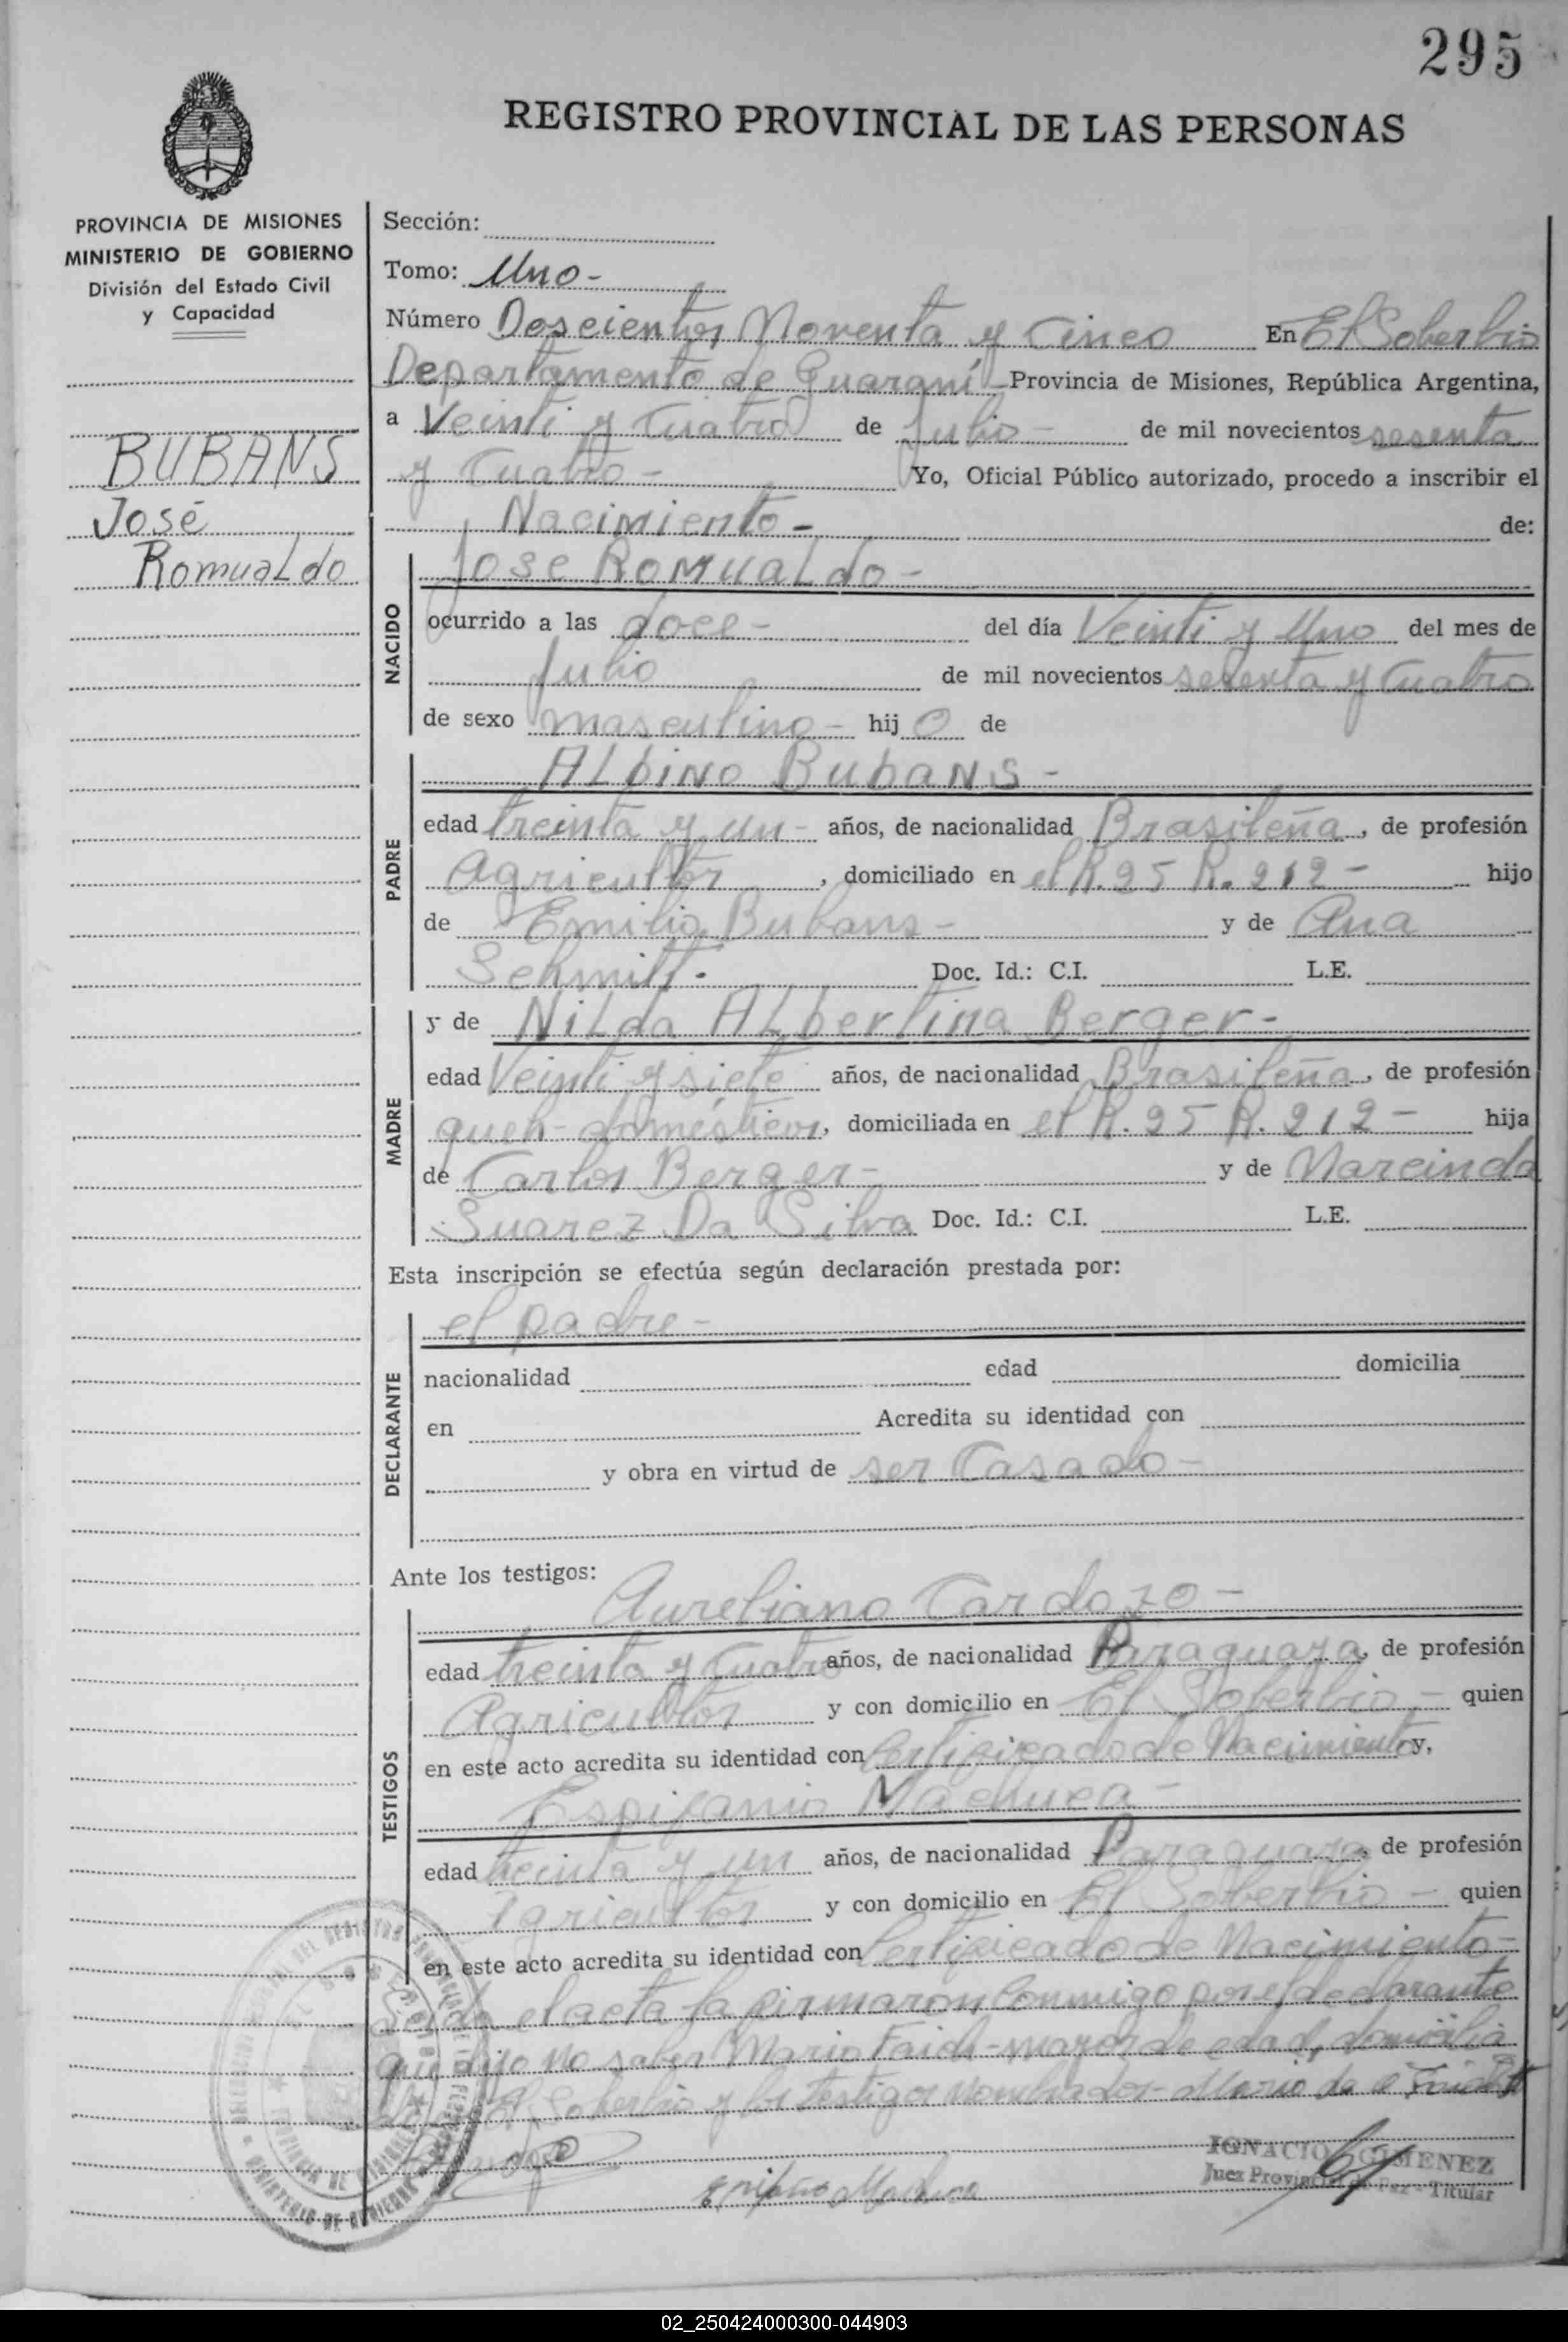 295
REGISTRO PROVINCIAL DE LAS PERSONAS
PROVINCIA DE MISIONES
MINISTERIO DE GOBIERNO
División del Estado Civil
y Capacidad
BUBANS
José
Romualdo
Sección:
Tomo: Uno-
Número Doscientos Noventa y Cinco En El Soberbio
Departamento de Guaraní - Provincia de Misiones, República Argentina,
a Veinti y Cuatro de Julio - de mil novecientos sesenta
y Cuatro - Yo, Oficial Público autorizado, procedo a inscribir el
Nacimiento - de:
NACIDO
Jose Romualdo -
ocurrido a las doce - del día Veinti y Uno del mes de
Julio de mil novecientos sesenta y Cuatro
de sexo masculino - hij o de
PADRE
Albino Bubans -
edad treinta y un - años, de nacionalidad Brasileña, de profesión
Agricultor, domiciliado en el K. 25 R. 212 - hijo
de Emilio Bubans - y de Ana
Schmitt. Doc. Id.: C.I. L.E.
MADRE
y de Nilda Albertina Berger -
edad Veinti y siete años, de nacionalidad Brasileña, de profesión
queh- domésticos, domiciliada en el K. 25 R. 212 - hija
de Carlos Berger - y de Marcinda
Suarez Da Silva Doc. Id.: C.I. L.E.
Esta inscripción se efectúa según declaración prestada por:
DECLARANTE
el padre -
nacionalidad edad domicilia
en Acredita su identidad con
y obra en virtud de ser Casado -
Ante los testigos:
TESTIGOS
Aureliano Cardozo -
edad treinta y Cuatro años, de nacionalidad Paraguaya, de profesión
Agricultor y con domicilio en El Soberbio - quien
en este acto acredita su identidad con Certificado de Nacimiento y,
Espifanio Machuca -
edad treinta y un años, de nacionalidad Paraguaya, de profesión
Agricultor y con domicilio en El Soberbio - quien
en este acto acredita su identidad con Certificado de Nacimiento -
Leida el acta la firmaron conmigo por el declarante
que dijo no saber Mario Faich - mayor de edad, domicilia
El Soberbio y los testigos nombrados -
IGNACIO GIMENEZ
Juez Provincial de Paz - Titular
02_250424000300-044903